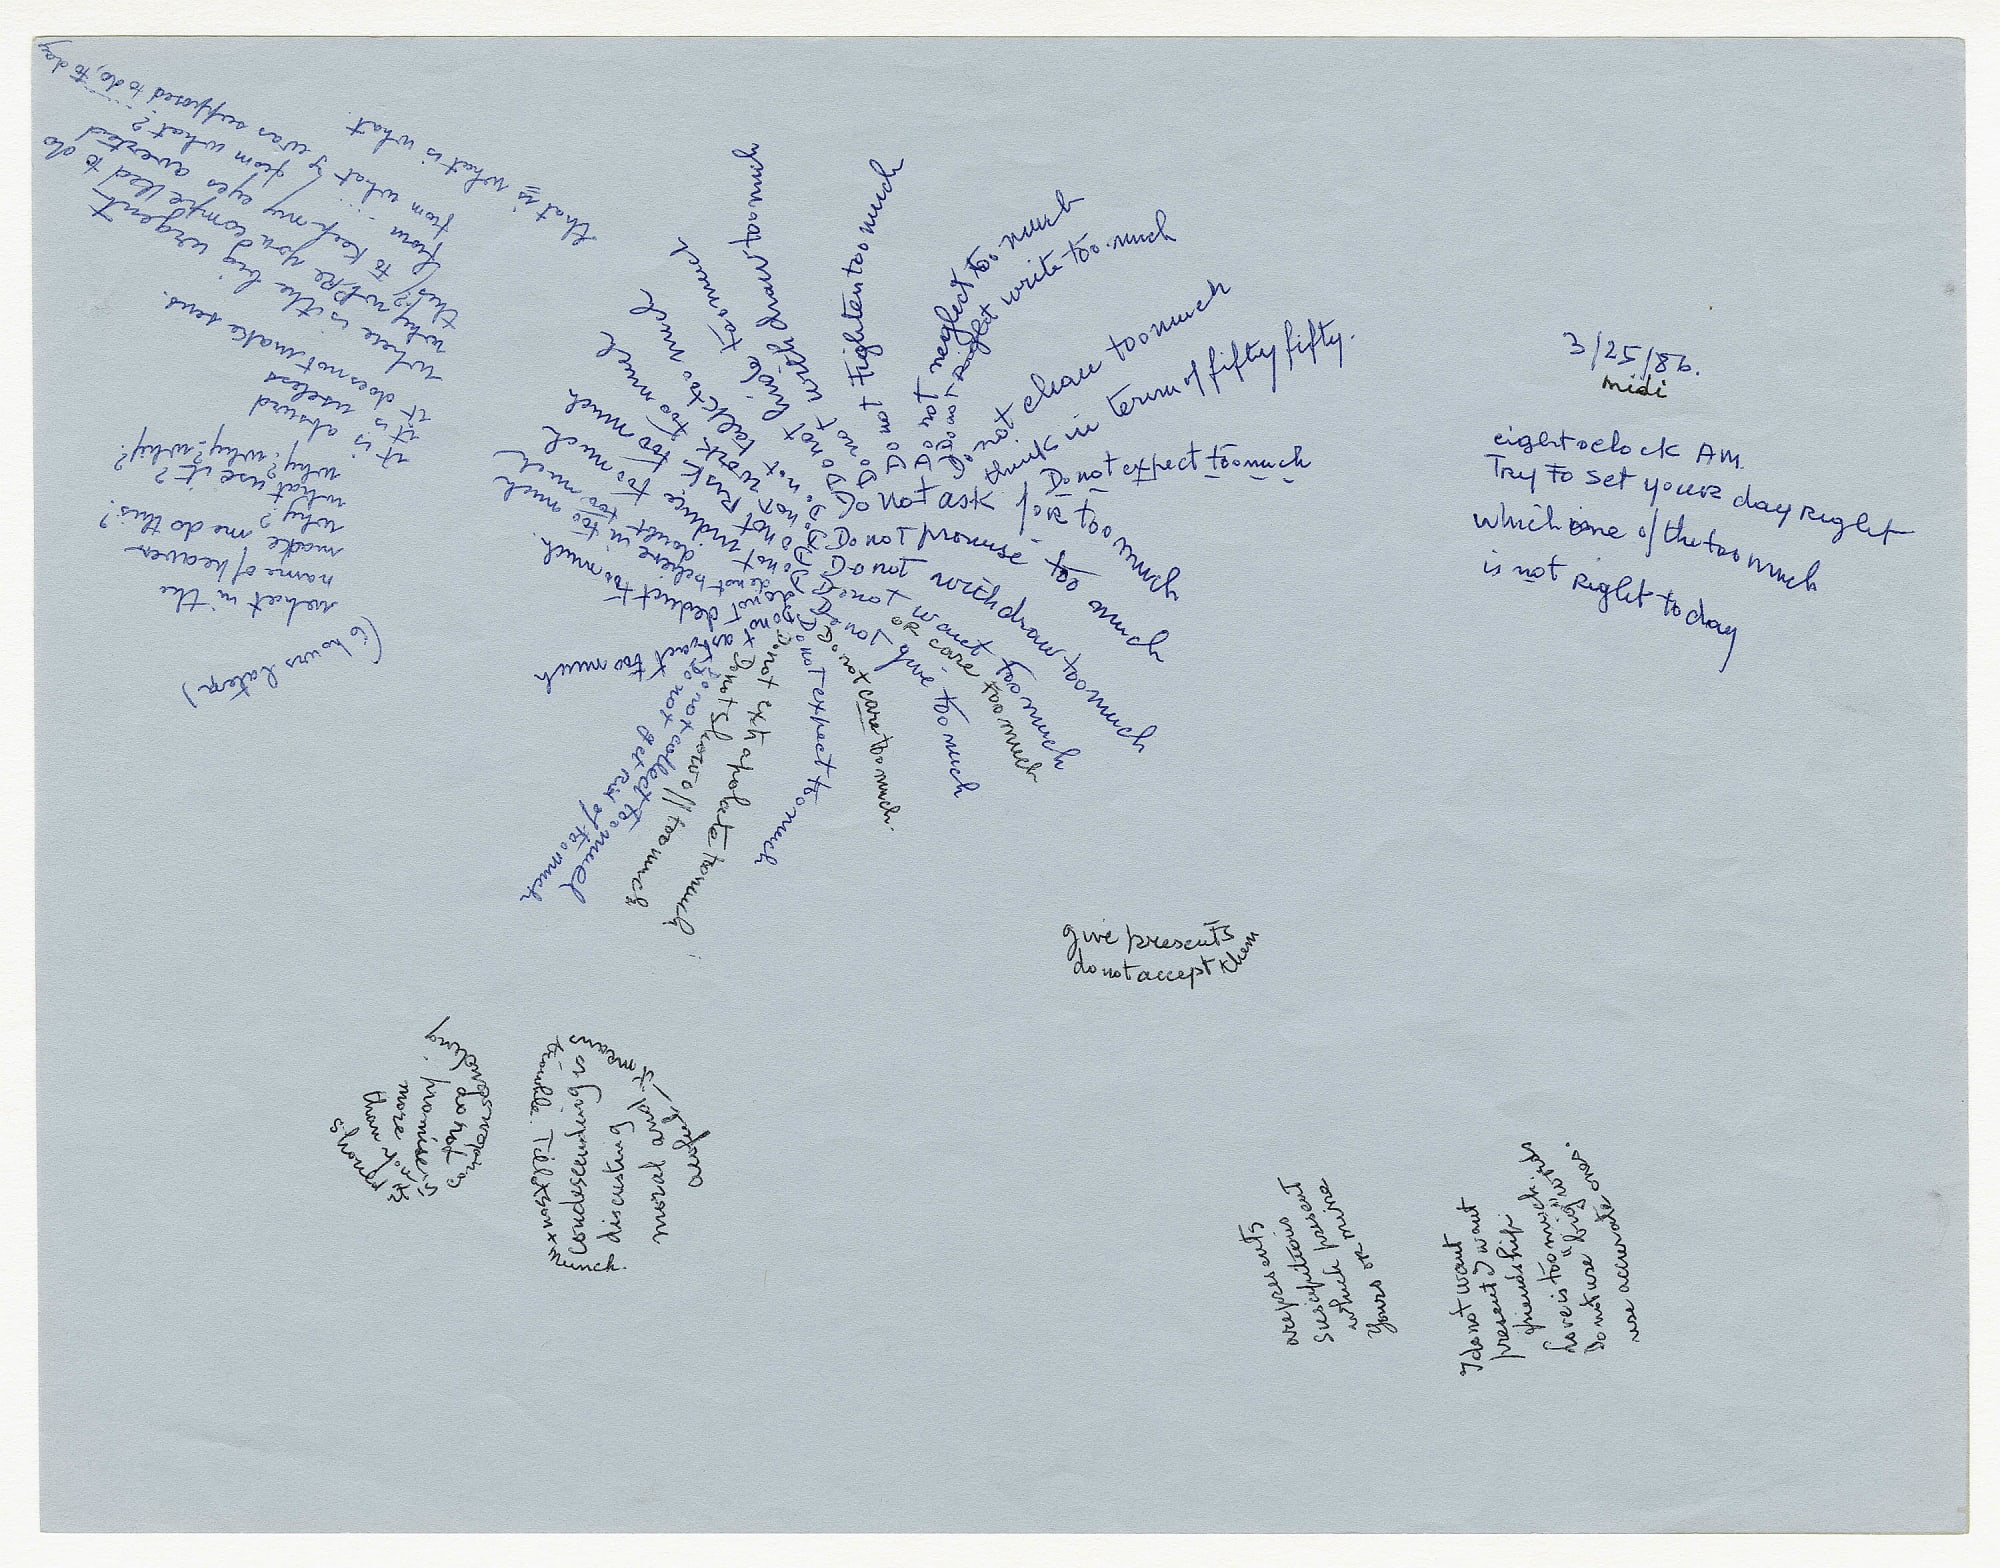 3/25/86.
midi
eight oclock AM.
Try to set your day right
which one of the too much
is not right today
Do not hide too much
Do not frighten too much
Do not neglect too much
write too much
not clean too much
think in term of fifty fifty.
Do not expect too much
Do not ask for too much
Do not promise too much
Do not withdraw too much
Do not want too much
or care too much
Do not give too much
Do not care too much.
Do not expect too much
Do not extrapolate too much
Do not show off too much
Do not collect too much
Do not get rid of too much
Do not astract too much
do not deduct too much.
do not believe in too much
do not doubt too much
Do not induce too much
Do not risk too much
Do not work too much
Do not talk too much
(6 hours later)
what in the
name of heaven
made me do this?
why?
what use it?
why? why? why?
it is absurd
it is useless
it does not make sens.
where is the big urgent
why were you compelled to do
this?
to keep my eyes averted
from from what?
from what I was supposed to do, to day
that is what is what.
give presents
do not accept them
do not
promise
more
than
it means
trouble. Till x son x
condescending
discusting
moral
much.
are presents
suscipitious
which present
yours or mine
I do not want
present I want
friendship.
love is too much
Do not use "big" words
use accurate ones.